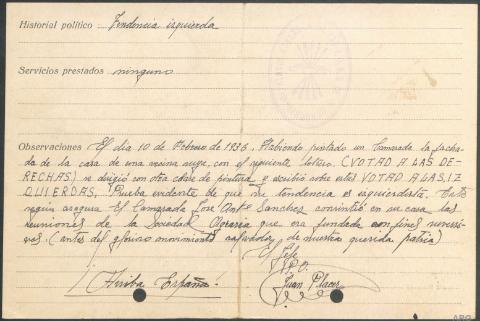 Historial político: Tendencia izquierda
Servicios prestados ninguno
Observaciones El dia 10 de Febrero de 1936, Habiendo pintado un Camarada la facha-
da de la casa de una vecina suya, con el siguiente letrero. (VOTAD A LAS DE-
RECHAS) se dirigió con otra clase de pintura y escribió sobre ellas VOTAD A LAS IZ
QUIERDAS, Prueba evidente de que su tendencia es izquierdista. Este
según asegura El Camarada Jose Antº Sanchez consintió en su casa las
reuniones de la Sociedad Obrera que era fundada con fines
(antes del glorioso movimiento salvador, de nuestra querida patria)
El Jefe
P.O.
Arriba España.
Juan Placer